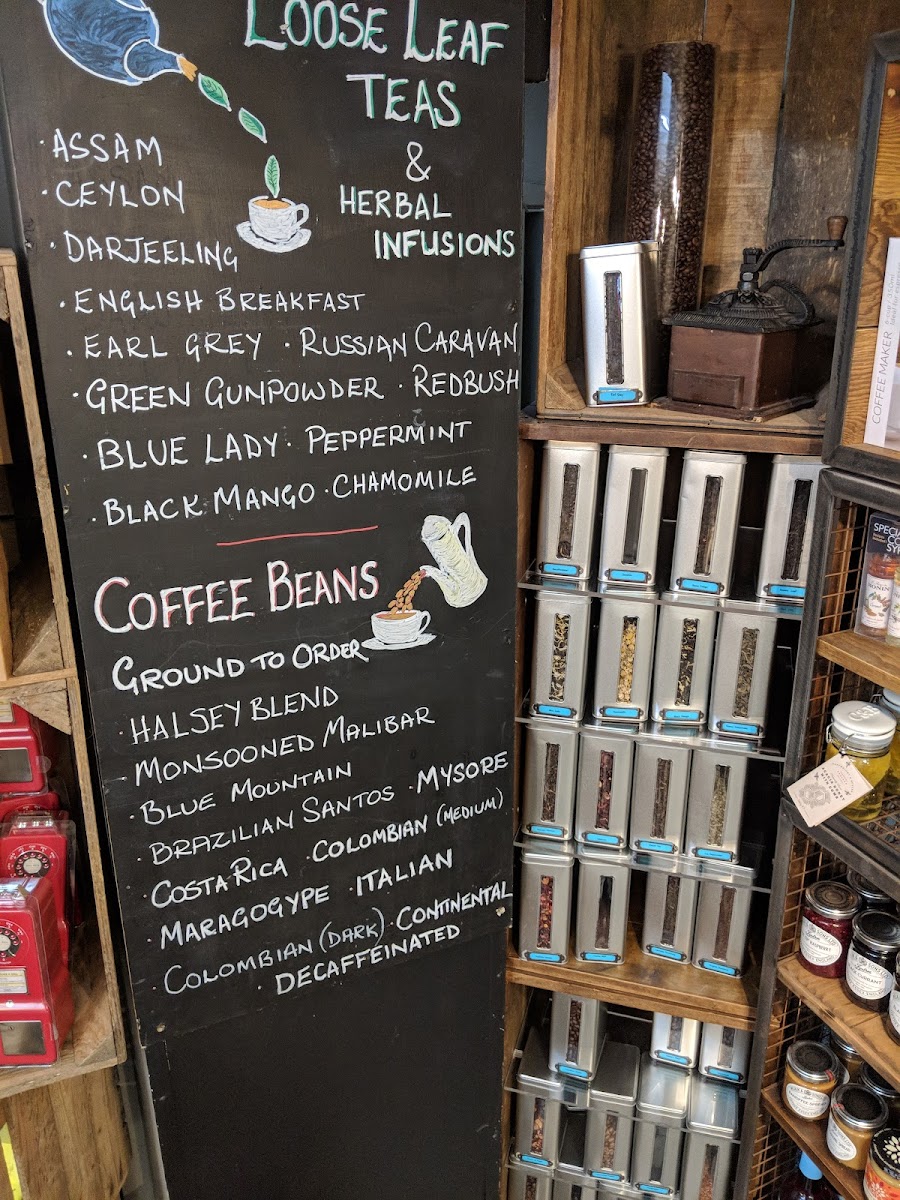 LOOSE LEAF
TEAS
&
HERBAL
INFUSIONS
· ASSAM
· CEYLON
· DARJEELING
· ENGLISH BREAKFAST
· EARL GREY · RUSSIAN CARAVAN
· GREEN GUNPOWDER · REDBUSH
· BLUE LADY · PEPPERMINT
· BLACK MANGO · CHAMOMILE
COFFEE BEANS
GROUND TO ORDER
· HALSEY BLEND
· MONSOONED MALIBAR
· BLUE MOUNTAIN
· BRAZILIAN SANTOS · MYSORE
· COSTA RICA · COLOMBIAN (MEDIUM)
· MARAGOGYPE · ITALIAN
· COLOMBIAN (DARK) · CONTINENTAL
· DECAFFEINATED
COFFEE MAKER